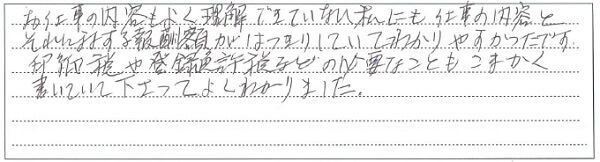 お仕事の内容もよく理解できていない私にも仕事の内容と
それに対する報酬額がはっきりしていてわかりやすかったです
印紙税や登録免許税などの必要なこともこまかく
書いていて下さってよくわかりました。